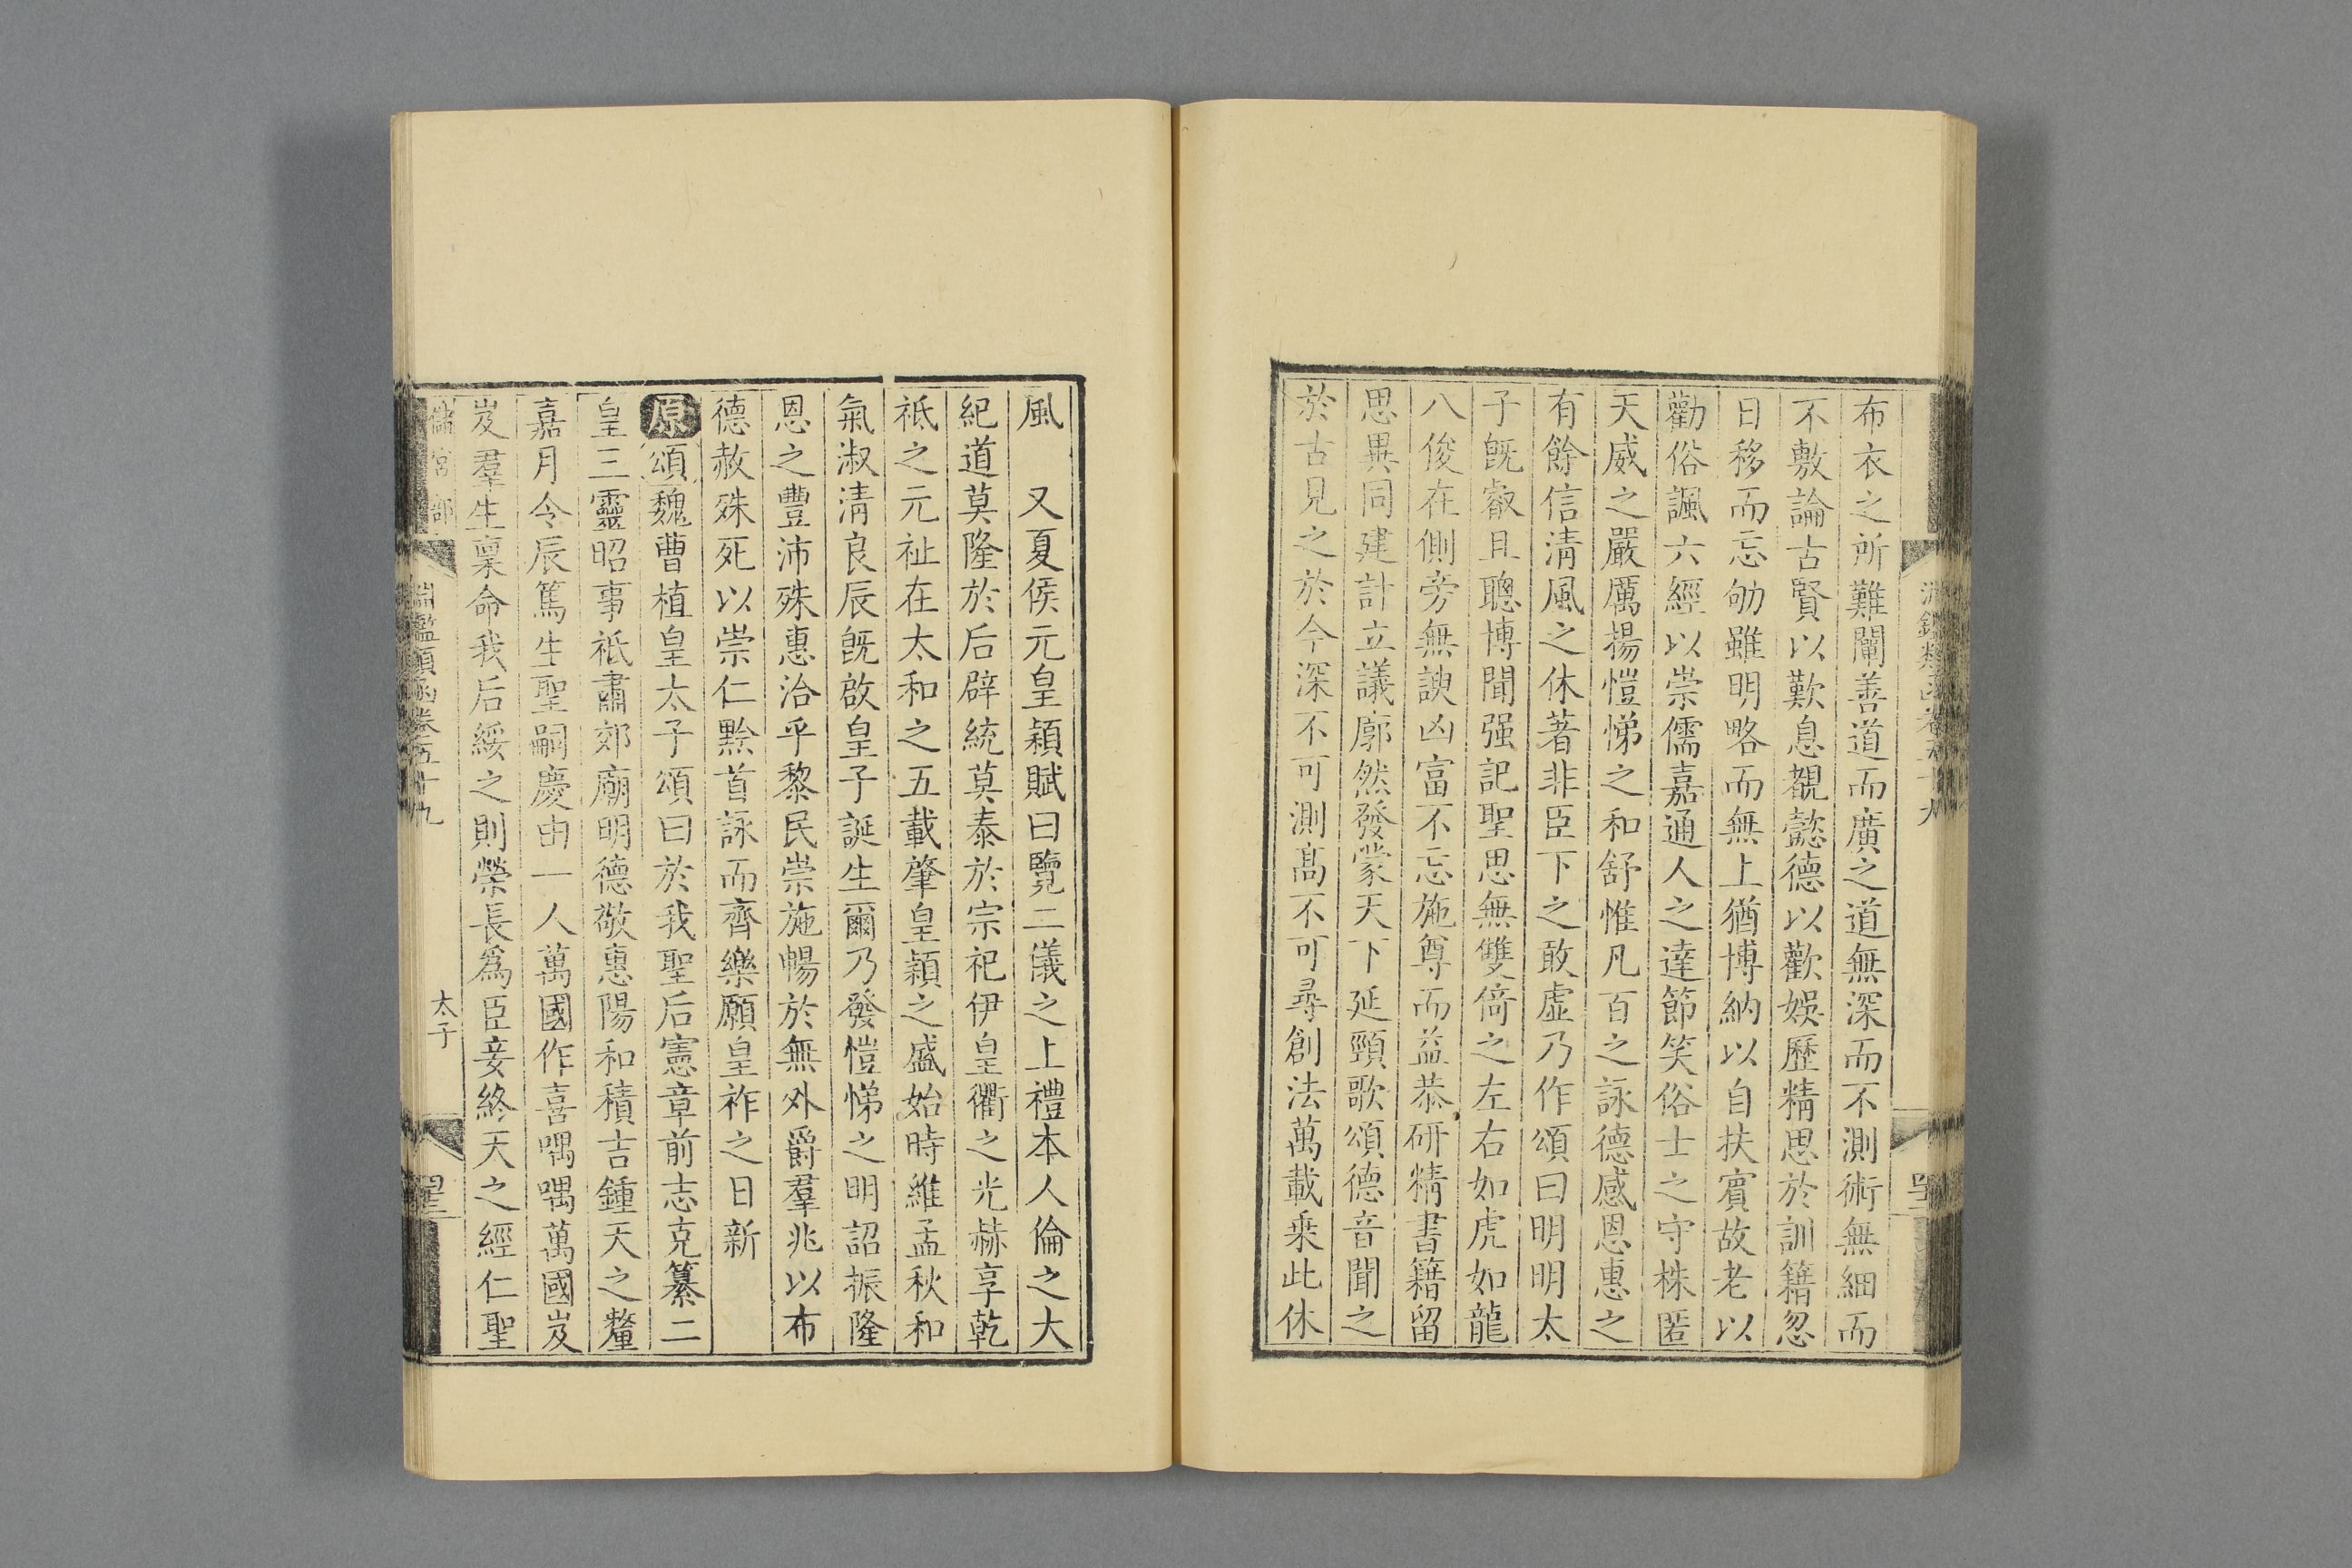 布衣之所難闡善道而廣之道無深而不測術無細而
不敷論古賢以歎息覩懿德以歡娛歷精思於訓籍忽
日移而忘劬雖明略而無上猶博納以自扶賓故老以
勸俗諷六經以崇儒嘉通人之達節笑俗士之守株匿
天威之嚴厲揚愷悌之和舒惟凡百之詠德感恩惠之
有餘信清風之休著非臣下之敢虛乃作頌曰明明太
子旣叡且聰博聞强記聖思無雙倚之左右如虎如龍
八俊在側旁無諛凶富不忘施尊而益恭研精書籍留
思異同建計立議廓然發蒙天下延頸歌頌德音聞之
於古見之於今深不可測高不可尋創法萬載乗此休
風　又夏侯元皇頴賦曰覽二儀之上禮本人倫之大
紀道莫隆於后辟統莫泰於宗祀伊皇衢之光赫享乾
祗之元祉在太和之五載肇皇頴之盛始時維孟秋和
氣淑清良辰旣啟皇子誕生爾乃發愷悌之明詔振隆
恩之豐沛殊惠洽乎黎民崇施暢於無外爵羣兆以布
德赦殊死以崇仁黔首詠而齊樂願皇祚之日新
原頌魏曹植皇太子頌曰於我聖后憲章前志克纂二
皇三靈昭事祗肅郊廟明德敬惠陽和積吉鍾天之釐
嘉月令辰篤生聖嗣慶由一人萬國作喜喁喁萬國岌
岌羣生稟命我后綏之則榮長爲臣妾終天之經仁聖
儲宮部　淵鑑類函卷五十九　太子